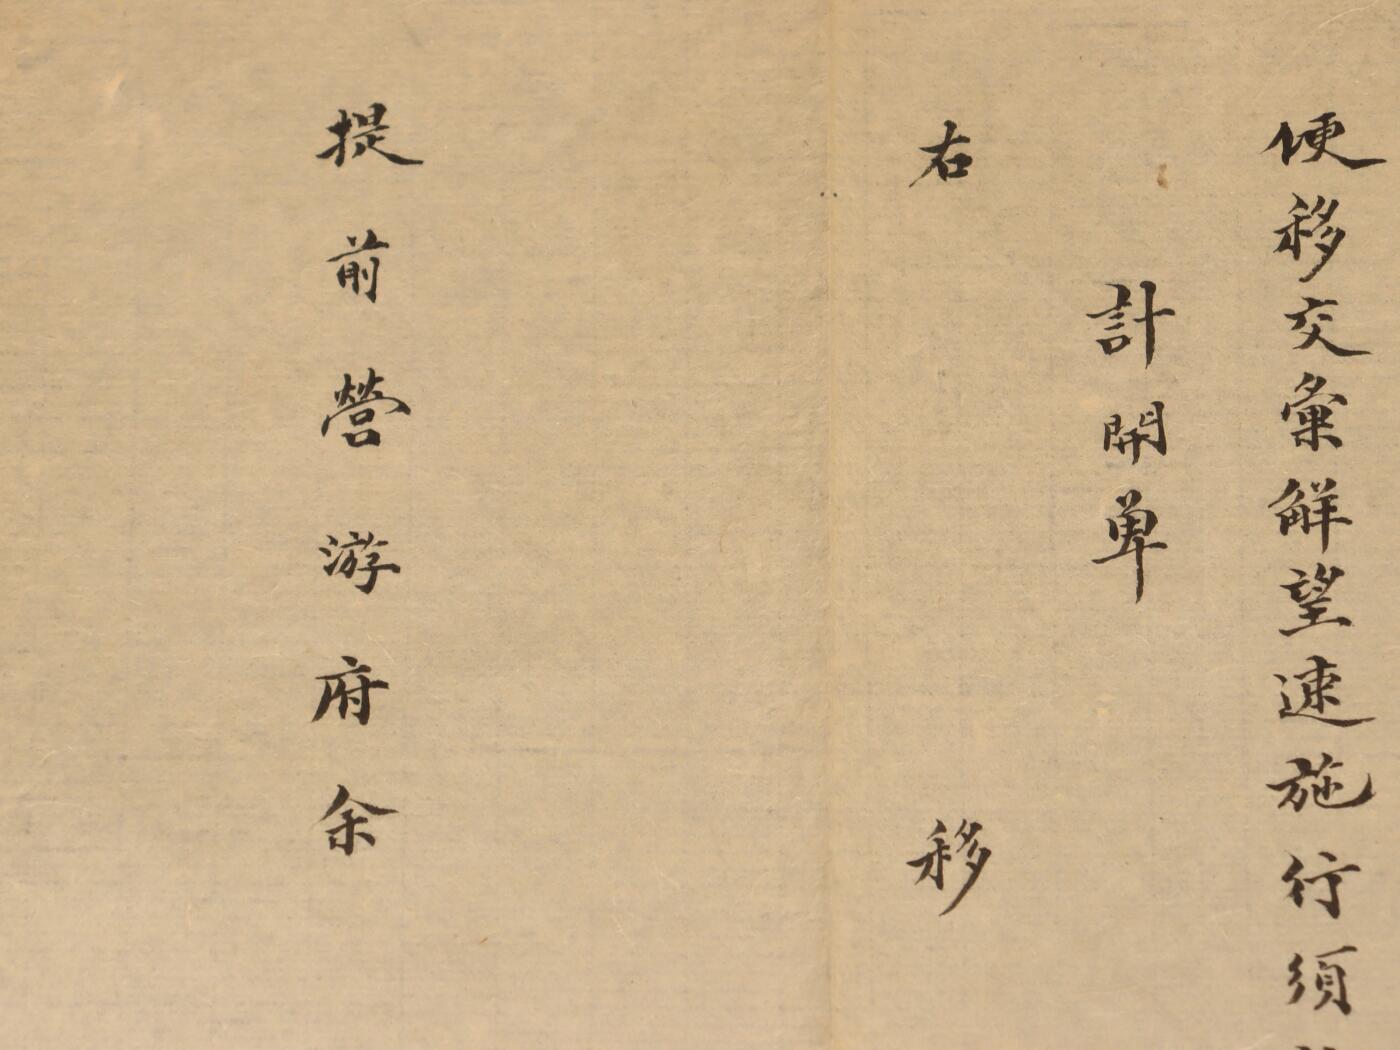 便移交彙觧望速施行須
計開单
右移
提前營游府余